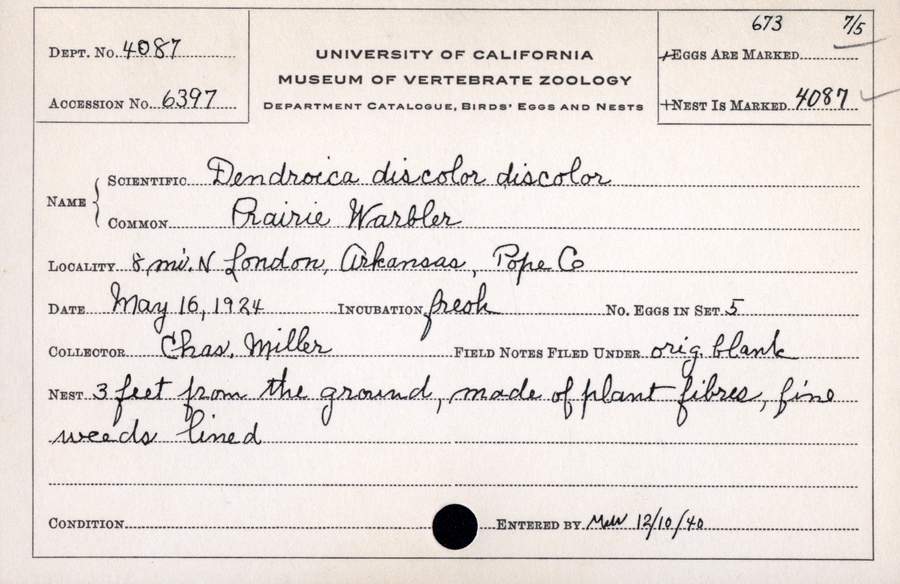 673 7/5
Dept. No. 4087
UNIVERSITY OF CALIFORNIA
Eggs Are Marked
MUSEUM OF VERTEBRATE ZOOLOGY
Accession No. 6397
Department Catalogue, Birds' Eggs and Nests
+Nest Is Marked 4087
Name
Scientific Dendroica discolor discolor
Common Prairie Warbler
Locality 8 mi. N London, Arkansas, Pope Co
Date May 16, 1924 Incubation fresh No. Eggs in Set 5
Collector Chas. Miller Field Notes Filed Under orig. blank
Nest 3 feet from the ground, made of plant fibres, fine
weeds lined
Condition Entered by 12/10/40